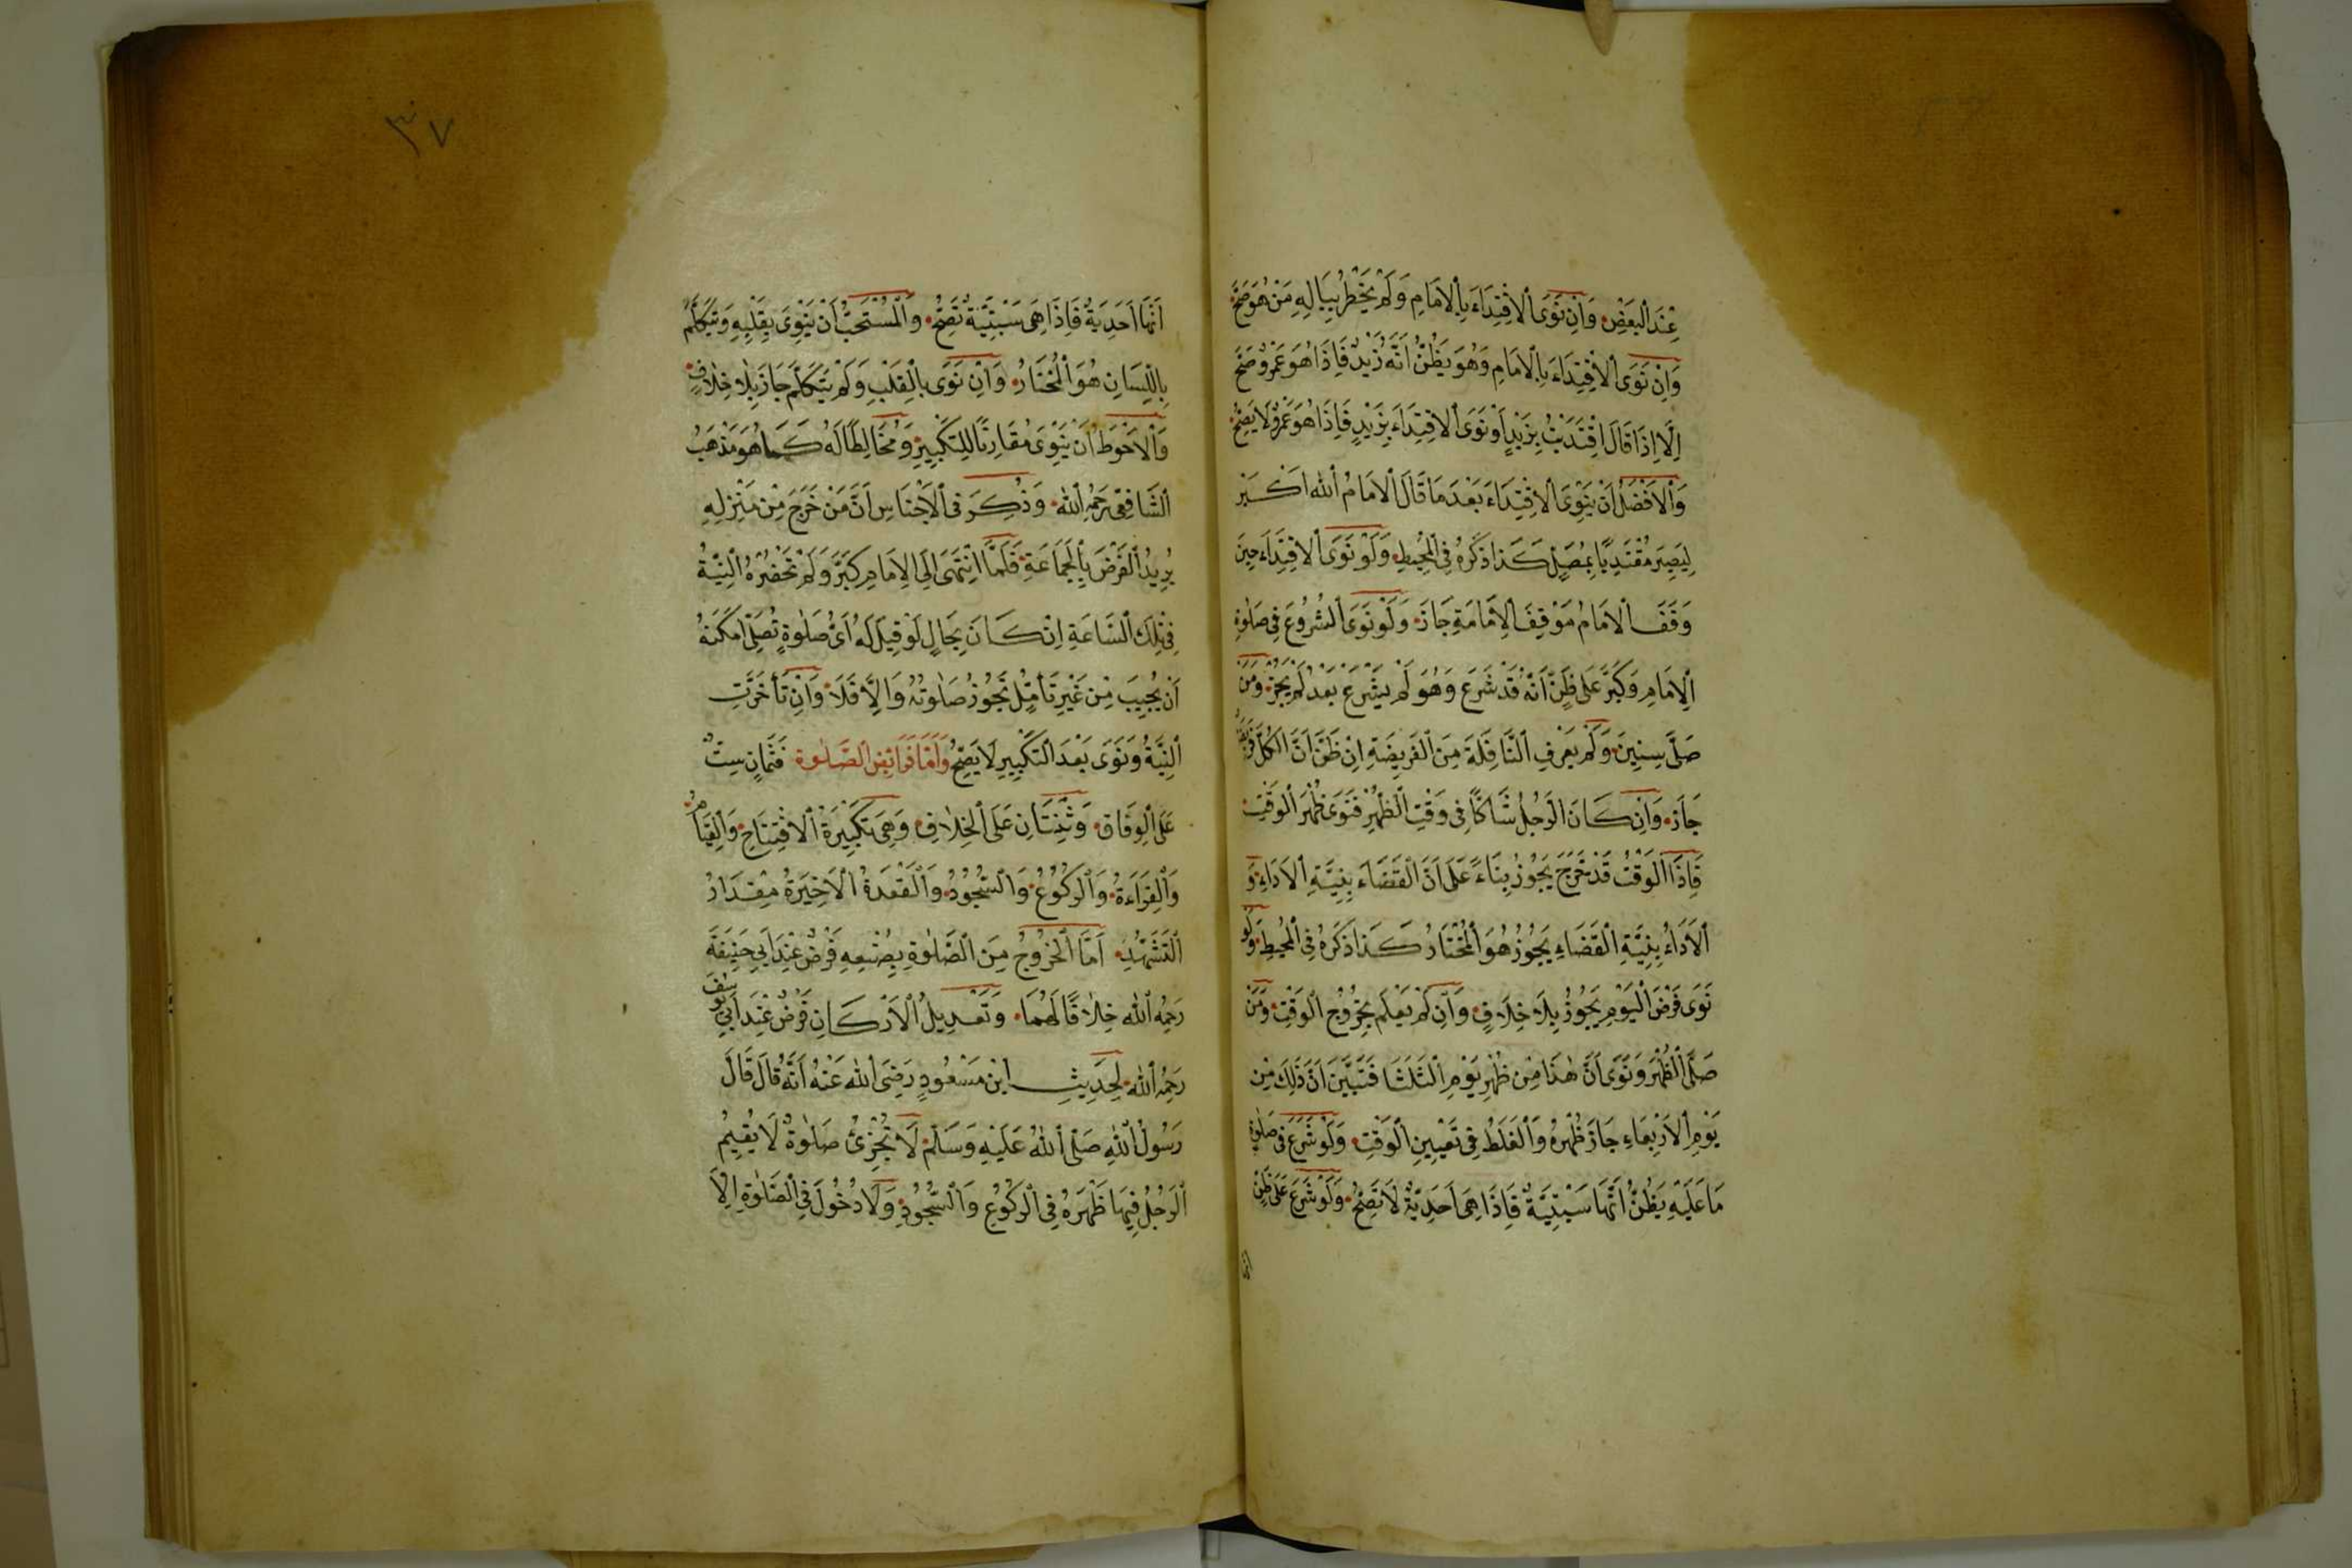 عِنْدَ الْبَعْضِ وَاِنْ نَوَى الْاِقْتِدَاءَ بِالْاِمَامِ وَلَمْ يَخْطُرْ بِبَالِهِ مَنْ هُوَ صَحَّ
وَاِنْ نَوَى الْاِقْتِدَاءَ بِالْاِمَامِ وَهُوَ يَظُنُّ اَنَّهُ زَيْدٌ فَاِذَا هُوَ عَمْرٌو صَحَّ
اِلَّا اِذَا قَالَ اقْتَدَيْتُ بِزَيْدٍ اَوْ نَوَى الْاِقْتِدَاءَ بِزَيْدٍ فَاِذَا هُوَ عَمْرٌو لَا يَصِحُّ
وَالْاَفْضَلُ اَنْ يَنْوِيَ الْاِقْتِدَاءَ بَعْدَ مَا قَالَ الْاِمَامُ اَللّٰه اَكْبَر
لِيَصِيرَ مُقْتَدِيًا بِمُصَلٍّ كَذَا ذَكَرَهُ فِي الْمُحِيطِ وَلَوْ نَوَى الْاِقْتِدَاءَ حِينَ
وَقَفَ الْاِمَامُ مَوْقِفَ الْاِمَامَةِ جَازَ وَلَوْ نَوَى الشُّرُوعَ فِي صَلٰوةِ
الْاِمَامِ وَكَبَّرَ عَلَى ظَنِّ اَنَّهُ قَدْ شَرَعَ وَهُوَ لَمْ يَشْرَعْ بَعْدُ لَمْ يَجُزْ وَمَنْ
صَلَّى سِنِينَ وَلَمْ يَعْرِفِ النَّافِلَةَ مِنَ الْفَرِيضَةِ اِنْ ظَنَّ اَنَّ الْكُلَّ فَرِيضَةٌ
جَازَ وَاِنْ كَانَ الرَّجُلُ شَاكًّا فِي وَقْتِ الظُّهْرِ فَنَوَى ظُهْرَ الْوَقْتِ
فَاِذَا الْوَقْتُ قَدْ خَرَجَ يَجُوزُ بِنَاءً عَلَى اَنَّ الْقَضَاءَ بِنِيَّةِ الْاَدَاءِ وَ
الْاَدَاءُ بِنِيَّةِ الْقَضَاءِ يَجُوزُ هُوَ الْمُخْتَارُ كَذَا ذَكَرَهُ فِي الْمُحِيطِ وَلَوْ
نَوَى فَرْضَ الْيَوْمِ يَجُوزُ بِلَا خِلَافٍ وَاِنْ لَمْ يَعْلَمْ بِخُرُوجِ الْوَقْتِ وَمَنْ
صَلَّى الظُّهْرَ وَنَوَى اَنَّ هٰذَا مِنْ ظُهْرِ يَوْمِ الثَّلَثَا فَتَبَيَّنَ اَنَّ ذٰلِكَ مِنْ
يَوْمِ الْاَرْبِعَاءِ جَازَ ظُهْرُهُ وَالْغَلَطُ فِي تَعْيِينِ الْوَقْتِ وَلَوْ شَرَعَ فِي صَلٰوةٍ
مَا عَلَيْهِ يَظُنُّ اَنَّهَا سَبْتِيَّةٌ فَاِذَا هِيَ اَحَدِيَّةٌ لَا تَصِحُّ وَلَوْ شَرَعَ عَلَى ظَنِّ
٣٧
اَنَّهَا اَحَدِيَّةٌ فَاِذَا هِيَ سَبْتِيَّةٌ تَصِحُّ وَالْمُسْتَحَبُّ اَنْ يَنْوِيَ بِقَلْبِهِ وَيَتَكَلَّمَ
بِاللِّسَانِ هُوَ الْمُخْتَارُ وَاِنْ نَوَى بِالْقَلْبِ وَلَمْ يَتَكَلَّمْ جَازَ بِلَا خِلَافٍ
وَالْاَحْوَطُ اَنْ يَنْوِيَ مُقَارِنًا لِلتَّكْبِيرِ وَمُخَالِطًا لَهُ كَمَا هُوَ مَذْهَبُ
الشَّافِعِيِّ رَحِمَهُ اللّٰهُ وَذُكِرَ فِي الْاَجْنَاسِ اَنَّ مَنْ خَرَجَ مِنْ مَنْزِلِهِ
يُرِيدُ الْفَرْضَ بِالْجَمَاعَةِ فَلَمَّا انْتَهَى اِلَى الْاِمَامِ كَبَّرَ وَلَمْ تَحْضُرْهُ النِّيَّةُ
فِي تِلْكَ السَّاعَةِ اِنْ كَانَ بِحَالٍ لَوْ قِيلَ لَهُ اَيَّ صَلٰوةٍ تُصَلِّي اَمْكَنَهُ
اَنْ يُجِيبَ مِنْ غَيْرِ تَأَمُّلٍ تَجُوزُ صَلٰوتُهُ وَاِلَّا فَلَا وَاِنْ تَأَخَّرَتِ
النِّيَّةُ وَنَوَى بَعْدَ التَّكْبِيرِ لَا يَصِحُّ وَاَمَّا فَرَائِضُ الصَّلٰوةِ فَثَمَانٍ سِتٌّ
عَلَى الْوِفَاقِ وَثِنْتَانِ عَلَى الْخِلَافِ وَهِيَ تَكْبِيرَةُ الْاِفْتِتَاحِ وَالْقِيَامُ
وَالْقِرَاءَةُ وَالرُّكُوعُ وَالسُّجُودُ وَالْقَعْدَةُ الْاَخِيرَةُ مِقْدَارَ
التَّشَهُّدِ اَمَّا الْخُرُوجُ مِنَ الصَّلٰوةِ بِصُنْعِهِ فَرْضٌ عِنْدَ اَبِي حَنِيفَةَ
رَحِمَهُ اللّٰهُ خِلَافًا لَهُمَا وَتَعْدِيلُ الْاَرْكَانِ فَرْضٌ عِنْدَ اَبِي يُوسُفَ
رَحِمَهُ اللّٰهُ لِحَدِيثِ ابْنِ مَسْعُودٍ رَضِيَ اللّٰهُ عَنْهُ اَنَّهُ قَالَ قَالَ
رَسُولُ اللّٰهِ صَلَّى اللّٰهُ عَلَيْهِ وَسَلَّمَ لَا تُجْزِئُ صَلٰوةٌ لَا يُقِيمُ
الرَّجُلُ فِيهَا ظَهْرَهُ فِي الرُّكُوعِ وَالسُّجُودِ وَلَا دُخُولَ فِي الصَّلٰوةِ اِلَّا